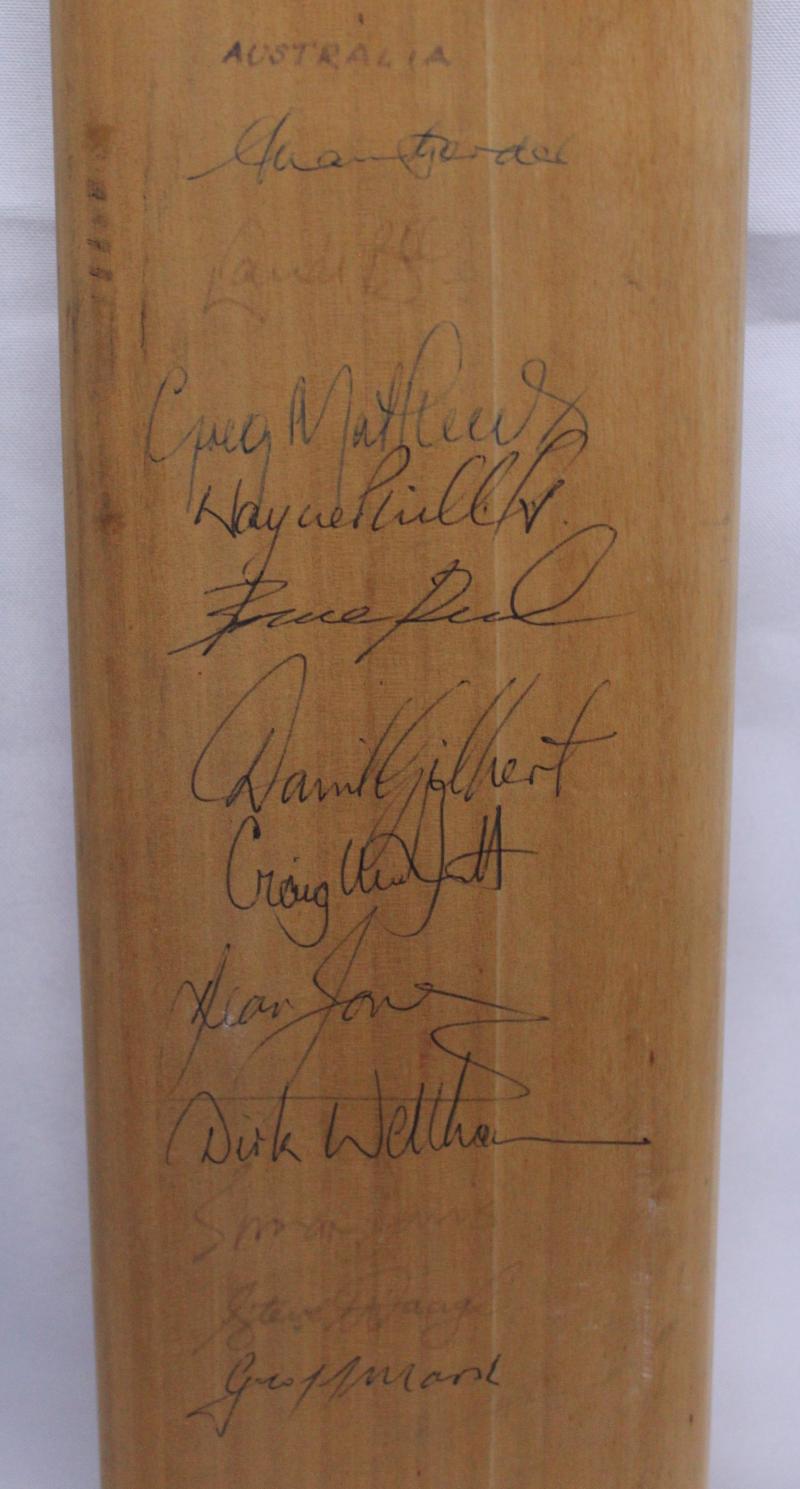 AUSTRALIA
Allan Border
Greg Matthews
Wayne Phillips
Bruce Reid
David Gilbert
Craig McDermott
Dean Jones
Dirk Wellham
Simon Davis
Steve Waugh
Geoff Marsh